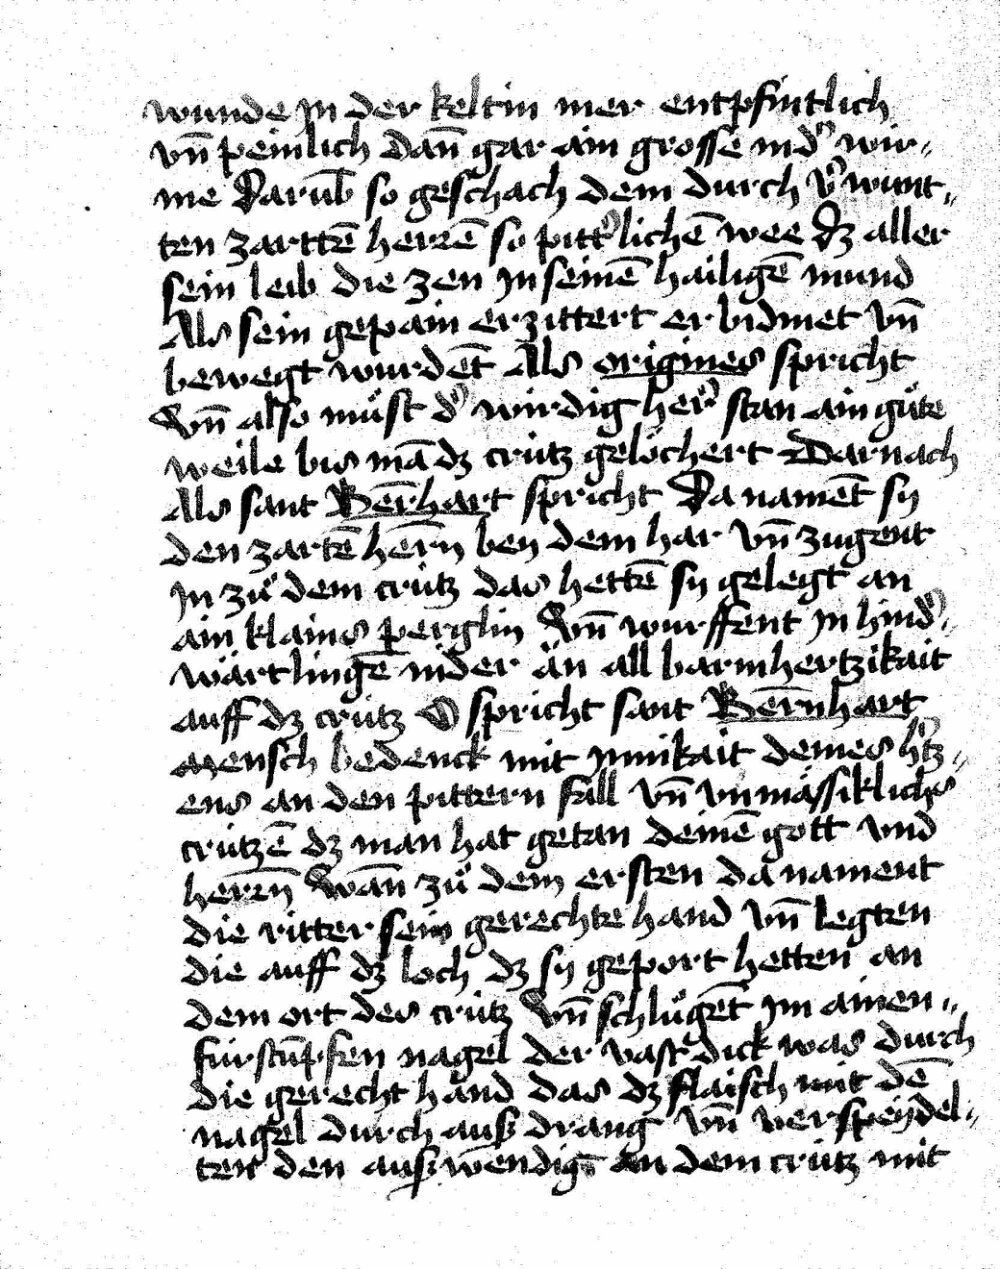 wunde jn der keltin mer entpfintlich
vn̄ peinlich dan̄ gar ain grosse nid᷑ wir„
me Darub̄ so geschach dem durch v᷑wunt„
ten zarttē herrē so pitt᷑lichē wee dz aller
sein leib die zen jn seinē hailigē mund
Als sein gepain erzittert erbidmet vn̄
bewegt wurdēt Als origines spricht
Vn̄ also muͤst d᷑ wirdig her᷑ stan ain gůte
weile bis mā dz crütz gelöchert Darnach
Als sant Bērhart spricht Da namēt sy
den zartē hērn bey dem har vn̄ zugent
jn zů dem crütz das hettē sy gelegt an
ain klains perglin Vn̄ wurffent jn hind᷑„
wärtlingē nider än all barmhertzikait
auff dz crütz O spricht sant Bērnhart
Mensch bedenck mit jnnikait deines h᷑tz„
ens an den pittern fall vn̄ vnmässiklichs
crützē dz man hat getan deinē gott vnd
herrn̄ Wān zů dem ersten da nament
die ritter sein gerechte hand vn̄ legten
die auff dz loch dz sy geport hetten an
dem ort des crütz Vn̄ schlůgēt im ainen„
fürstūpfen nagel der vast dick was durch
die gerecht hand das dz flaisch mit dē
nagel durch auß drang vn̄ verspeydel„
ten den außwendig an dem crütz mit